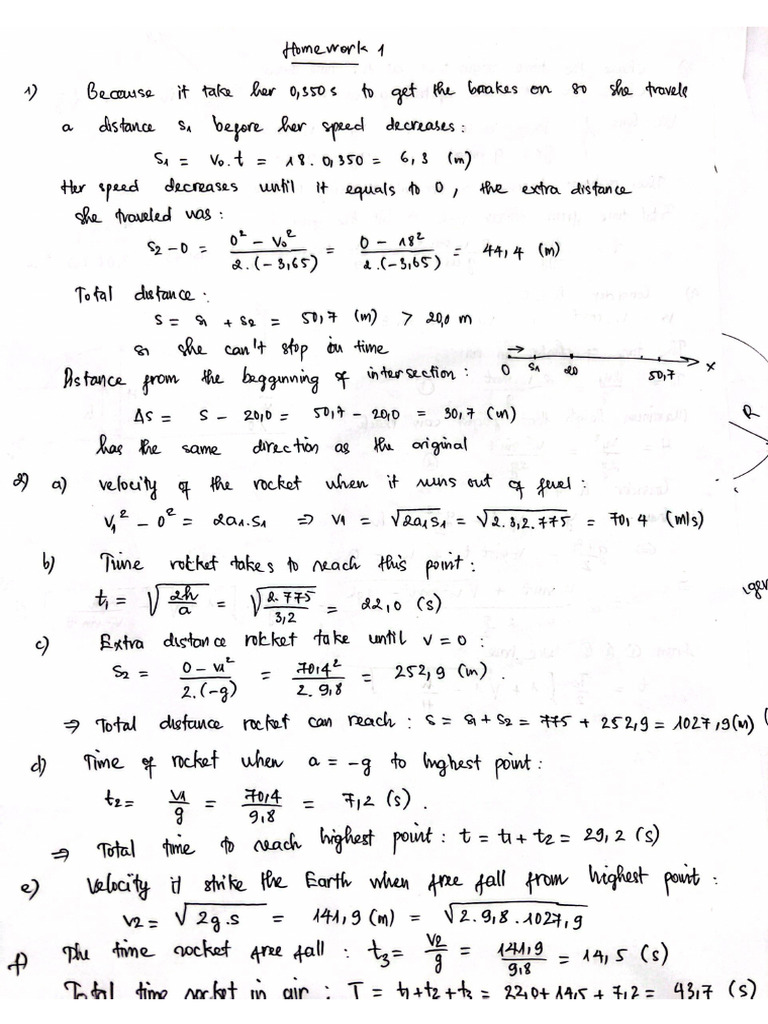 Homework 1
1) Because it take her 0,350 s to get the brakes on so she travels
a distance s₁ before her speed decreases:
s₁ = v₀.t = 18. 0,350 = 6,3 (m)
Her speed decreases until it equals to 0, the extra distance
she traveled was:
s₂ - 0 = (0² - v₀²)/(2.(-3,65)) = (0 - 18²)/(2.(-3,65)) = 44,4 (m)
Total distance:
s = s₁ + s₂ = 50,7 (m) > 20,0 m
so she can't stop in time
0 s₁ 20 50,7 x
Distance from the beggunning of intersection:
Δs = s - 20,0 = 50,7 - 20,0 = 30,7 (m)
R
has the same direction as the original
2) a) velocity of the rocket when it runs out of fuel:
v₁² - 0² = 2a₁.s₁ => v₁ = √(2a₁s₁) = √(2.3,2.775) = 70,4 (m/s)
b) Time rocket takes to reach this point:
t₁ = √(2h/a) = √(2.775/3,2) = 22,0 (s)
c) Extra distance rocket take until v = 0:
s₂ = (0 - v₁²)/(2.(-g)) = 70,4²/(2. 9,8) = 252,9 (m).
=> Total distance rocket can reach: s = s₁ + s₂ = 775 + 252,9 = 1027,9 (m)
d) Time of rocket when a = -g to highest point:
t₂ = v₁/g = 70,4/9,8 = 7,2 (s).
=> Total time to reach highest point: t = t₁ + t₂ = 29,2 (s)
e) Velocity it strike the Earth when free fall from highest point:
v₂ = √(2g.s) = 141,9 (m) = √(2.9,8.1027,9)
f) The time rocket free fall: t₃ = v₂/g = 141,9/9,8 = 14,5 (s)
Total time rocket in air: T = t₁ + t₂ + t₃ = 22,0 + 14,5 + 7,2 = 43,7 (s)